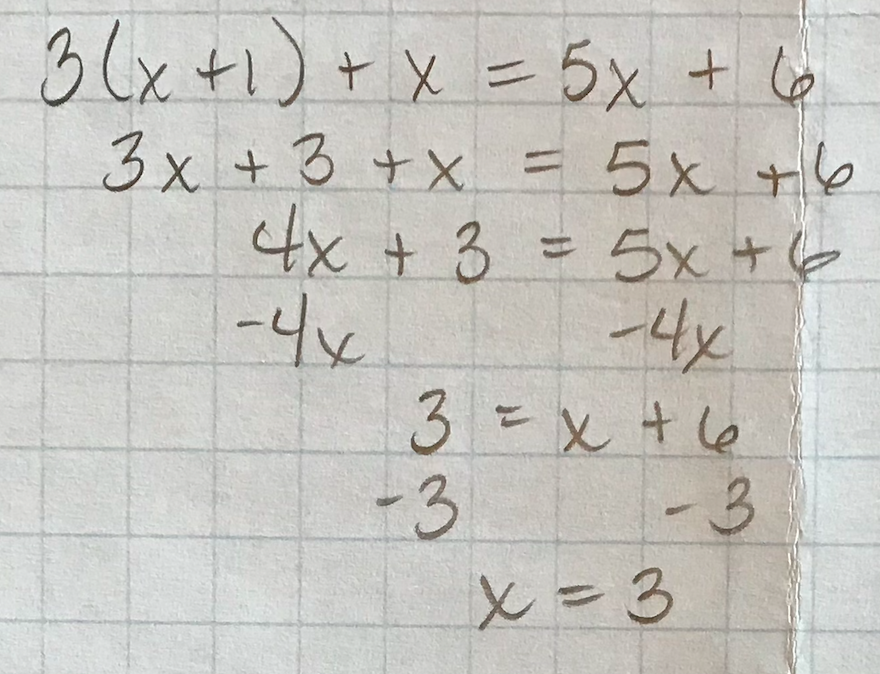 3(x+1) + x = 5x + 6
3x + 3 + x = 5x + 6
4x + 3 = 5x + 6
-4x -4x
3 = x + 6
-3 -3
x = 3